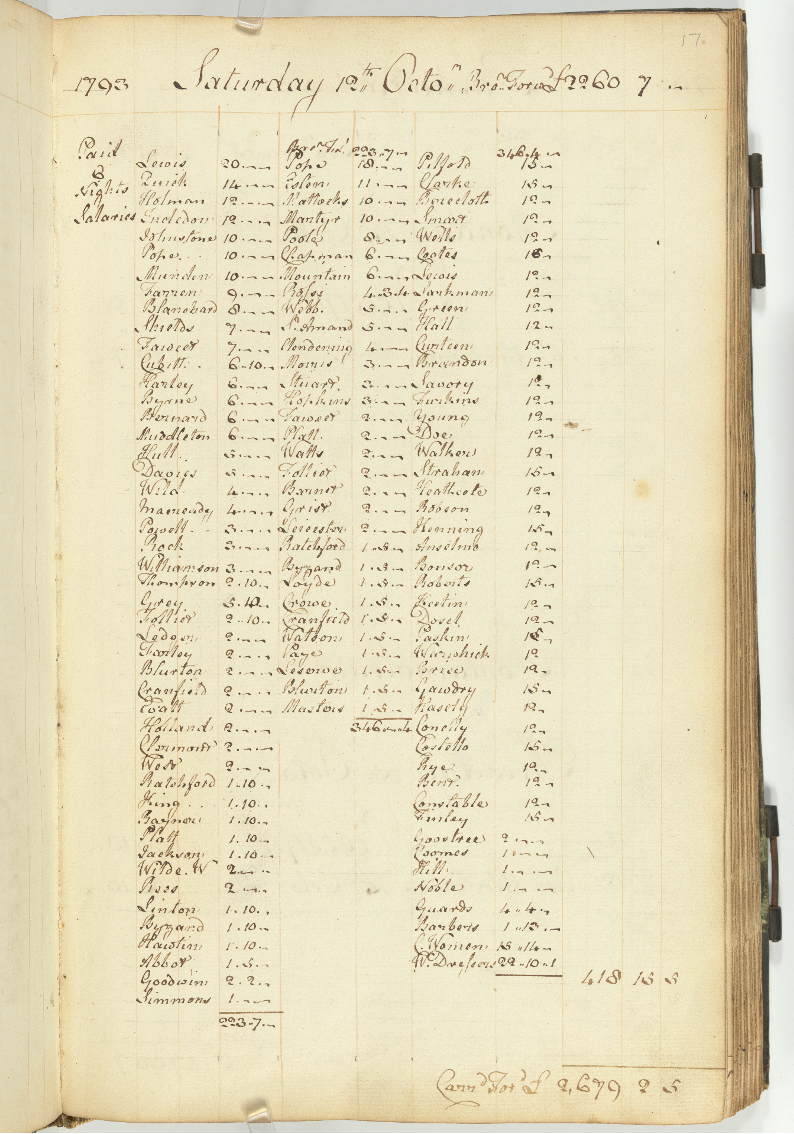 17
1793 Saturday 12th Octor Bro.t Forwd £2260 7 "
Paid
6
Nights
Salaries
Lewis 20 - -
Quick 14 - -
Holman 12 - -
Incledon 12 - -
Johnstone 10 - -
Pope 10 - -
Munden 10 - -
Farren 9 - -
Blanchard 8 - -
Shields 7 - -
Fawcet 7 - -
Cubitt 6 - 10 -
Harley 6 - -
Byrne 6 - -
Bernard 6 - -
Middleton 6 - -
Hull 5 - -
Davies 5 - -
Wild 4 - -
Macready 4 - -
Powell 3 - -
Rock 3 - -
Williamson 3 - -
Thompson 2 - 10 -
Grey 5 -
Follier 2 - 10 -
Ledger 2 - -
Farley 2 - -
Blurton 2 - -
Cranfield 2 - -
Coatt 2 - -
Holland 2 - -
Claremont 2 - -
West 2 - -
Ratchford 1 - 10 -
King 1 - 10 -
Rayner 1 - 10 -
Platt 1 - 10 -
Jackson 1 - 10 -
Wilde. W 2 - -
Rees 2 - -
Linton 1 - 10 -
Byzand 1 - 10 -
Hawtin 1 - 10 -
Abbot 1 - 5 -
Goodwin 2 - 2 -
Simmons 1 - -
223 - 7 -
Bro.t Fd. 223 - 7 -
Pope 18 - -
Esten 11 - -
Mattocks 10 - -
Martyr 10 - -
Poole 8 - -
Chapman 6 - -
Mountain 6 - -
Rossi 4 - 3 - 4
Webb 5 - -
5 - -
Clendening 4 - -
Morris 3 - -
Stuart 3 - -
Hopkins 3 - -
Fawcet 2 - -
Platt 2 - -
Watts 2 - -
Follier 2 - -
Barnet 2 - -
Grist 2 - -
Leicester 2 - -
Ratchford 1 - 5 -
Byzand 1 - 5 -
Loyde 1 - 5 -
Crowe 1 - 5 -
Cranfield 1 - 5 -
Watson 1 - 5 -
Paye 1 - 5 -
Leserve 1 - 5 -
Blurton 1 - 5 -
Masters 1 - 5 -
346 - - 4
346 - 4
Pilfold 15 -
Clarke 15 -
Bencloth 12 -
Smart 12 -
Wells 12 -
Coates 15 -
Lewis 12 -
Larkman 12 -
Green 12 -
Hall 12 -
Curteen 12 -
Brandon 12 -
Savory 12 -
Furkins 12 -
Young 12 -
Doe 12 -
Walker 12 -
Strahan 15 -
Heathcote 12 -
Robson 12 -
Henning 15 -
Anselmo 12 -
Bonsor 12 -
Roberts 15 -
Kestin 12 -
Dosel 12 -
Paskin 15 -
Warphick 12
Brise 12 -
Gawdry 15 -
Hasely 12 -
Conelly 12 -
Costello 15 -
Rye 12 -
Bent 12 -
Constable 12 -
Finley 15 -
Goostree 2 - -
Coomes 1 - -
Hill 1 - -
Noble 1 - -
Guards 4 - 4 -
Barbers 1 - 13 -
C. Women 15 - 14 -
W. Dressers 22 - 10 - 1
418 15 5
Carrd. Ford. £ 2,679 2 5